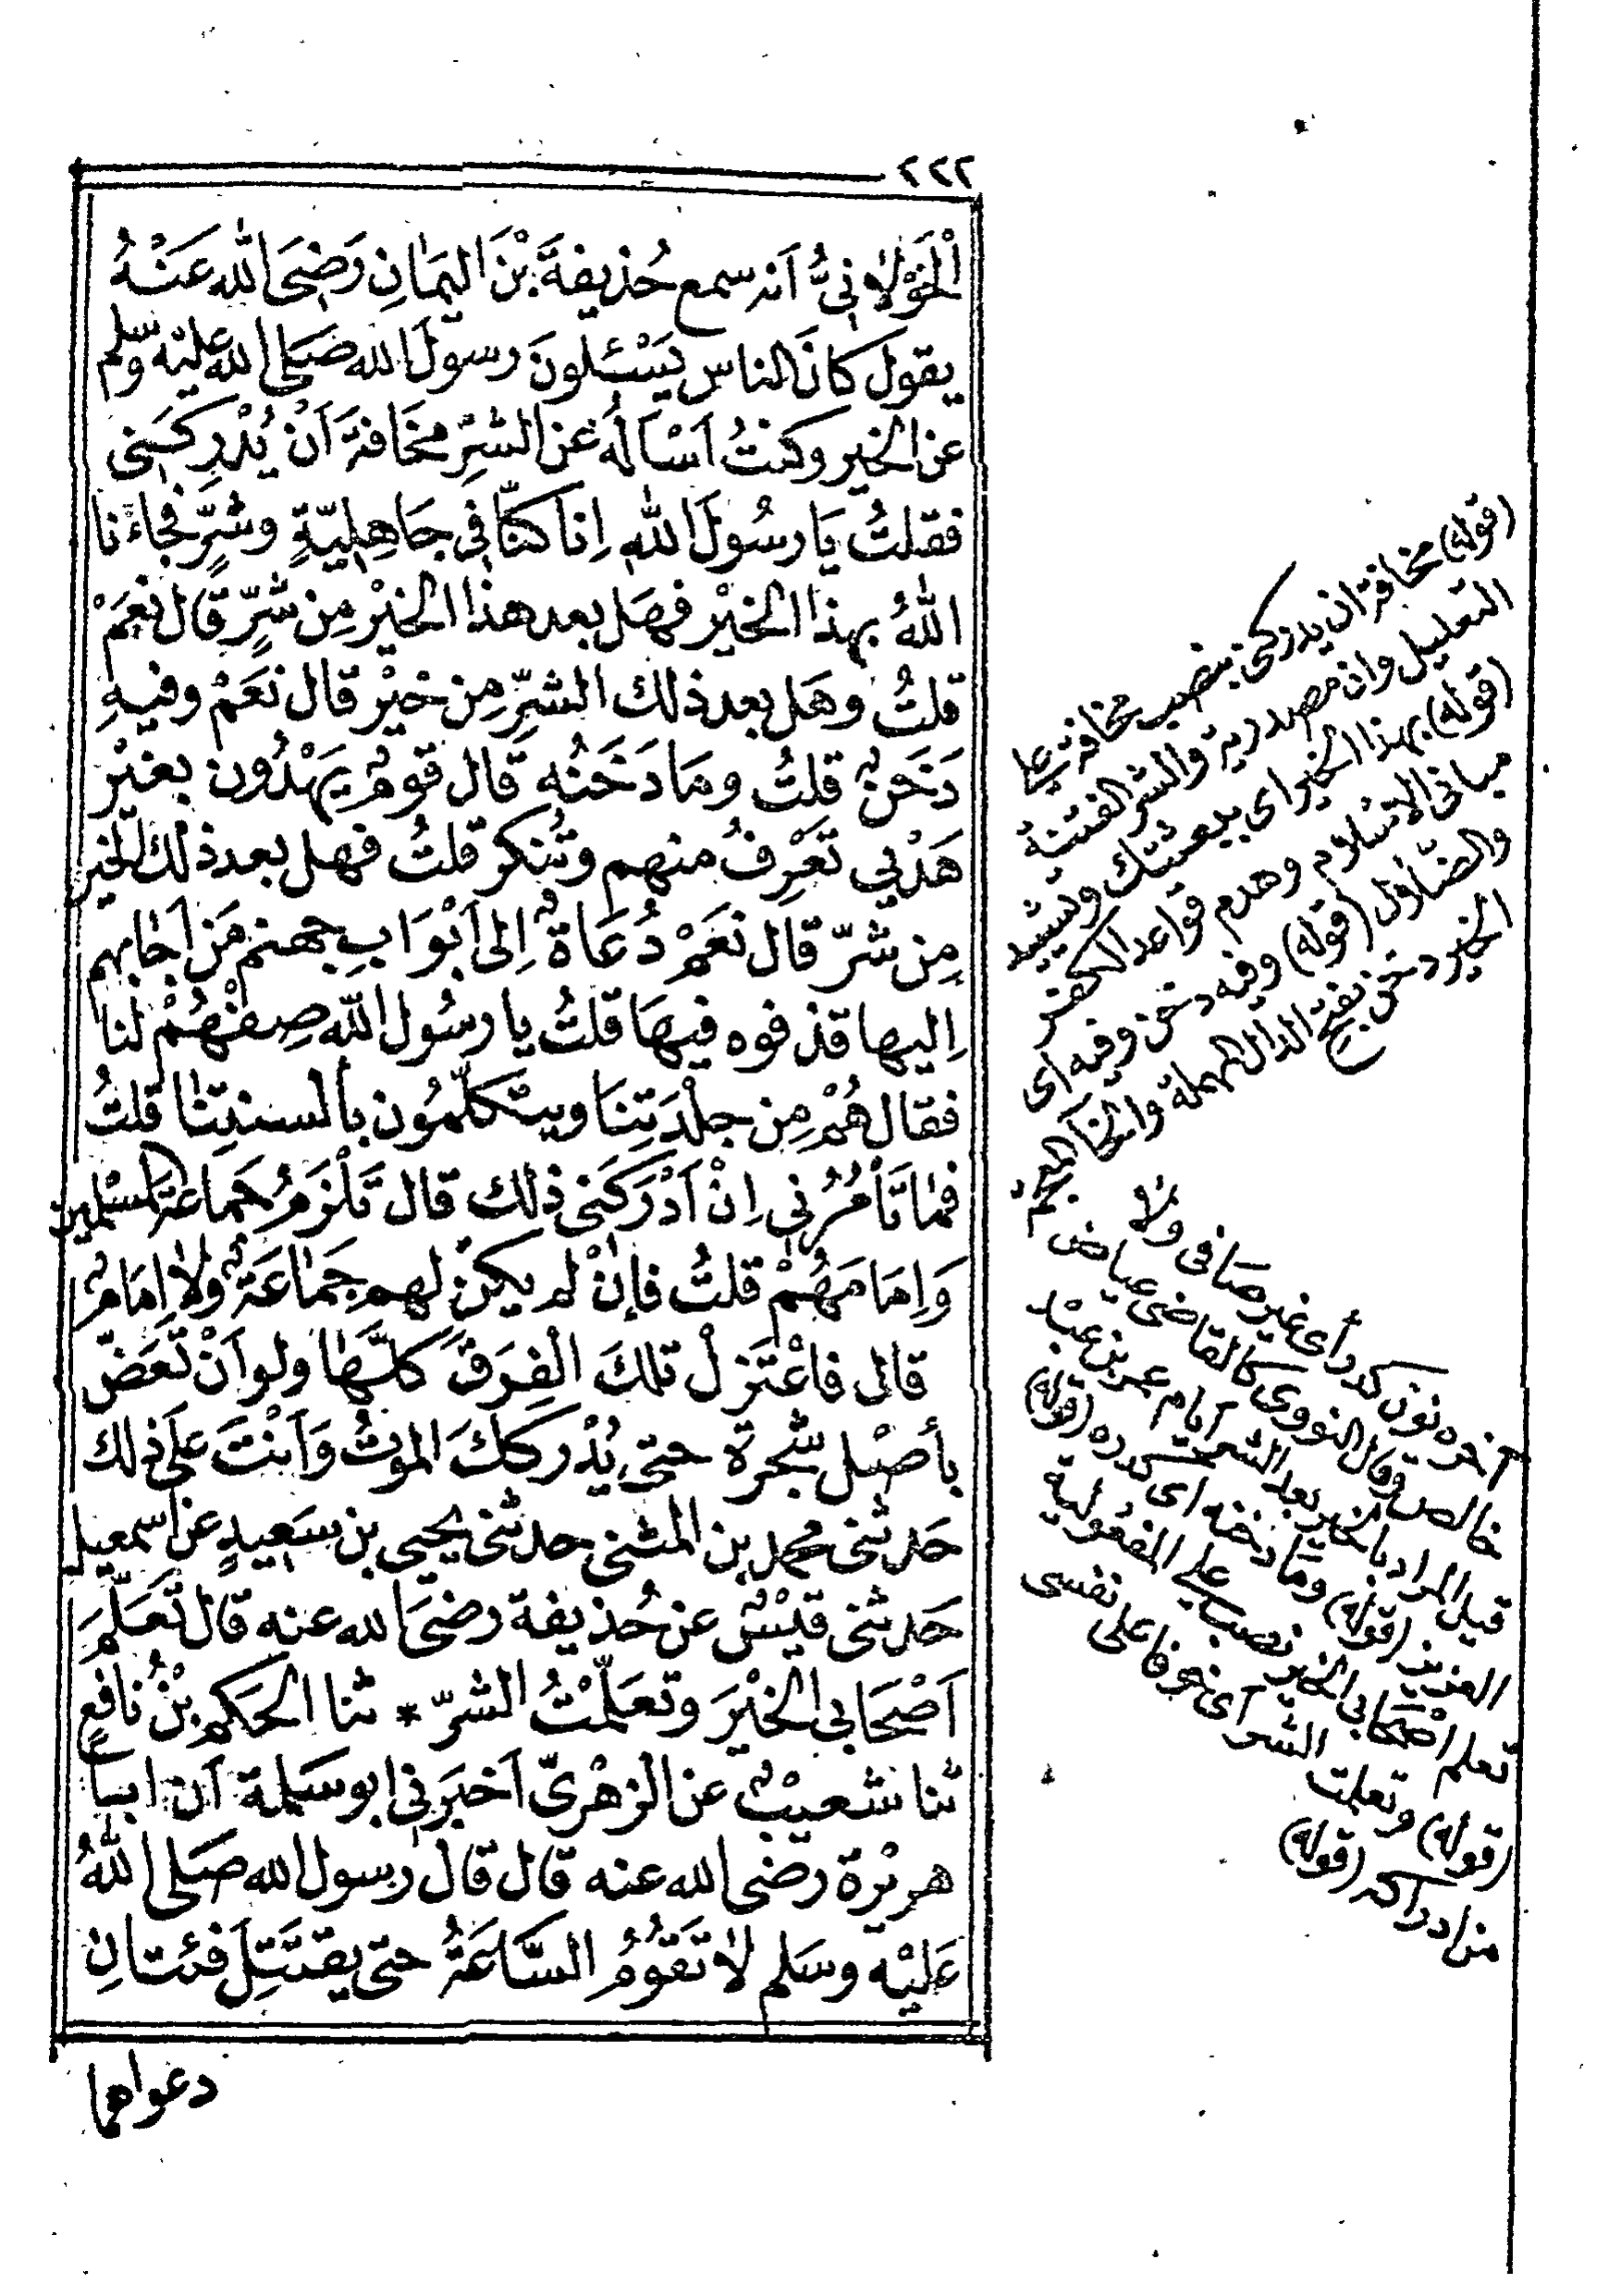 ٤٢٢
اَلْخَوْلَانِيُّ اَنه سمع حُذيفةَ بْنَ اليَمَانِ رَضِىَ الله عَنْهُ
يقول كانَ الناس يَسْئلونَ رسولَ الله صَلى الله عليه وسلم
عن الخير وكنتُ اَسْاَلُهُ عن الشرِّ مخَافةَ اَنْ يُدْرِكَنِى
فقلتُ يَا رسُولَ الله اِنا كنّا فِى جَاهِلِيّةٍ وشرٍّ فجاءَنا
اللهُ بهذا الخيْر فهَل بعد هذا الخيْر مِن شرٍّ قال نعَمْ
قلتُ وهَل بعد ذلك الشرِّ مِن خيْر قال نَعَمْ وفيهِ
دَخَنٌ قلتُ ومَا دَخَنُه قال قومٌ يَهْدُون بغيْر
هَدْيي تَعْرِفُ منهم وتُنكر قلتُ فهل بعد ذلك الخير
مِن شرّ قال نعَمْ دُعَاةٌ اِلى اَبْوَابِ جهنم مَن اَجابهم
اِليها قذفوه فيهَا قلتُ يا رسُول الله صِفْهُمْ لنا
فقال هُمْ مِن جِلْدَتِنَا ويتكلّمُون بألسنتِنا قلتُ
فمَا تَأمُرُنِى اِنْ اَدْرَكَنى ذلك قال تَلْزَمُ جَماعة المسْلمين
وَاِمَامَهُمْ قلتُ فاِنْ لم يكنْ لهم جَمَاعَةٌ ولاَ اِمَامٌ
قال فاعْتَزِلْ تلكَ الفِرَقَ كلَّهَا ولو اَنْ تَعَضَّ
بأصْل شجرة حتى يُدْركَكَ الموتُ وَاَنْتَ على ذلك
حَدثنى محمد بن المثنى حدثنى يحيى بن سَعِيدٍ عن اسمعيل
حَدثنى قيْسٌ عن حُذيفة رضىَ الله عنه قال تَعَلّمَ
اَصْحَابى الخيْرَ وتعَلّمْتُ الشرّ * ثنا الحَكم بْنُ نافعٍ
ثنا شعيْبٌ عن الزهْرىّ اَخبَرنِى ابو سَلمة اَن ابا
هريْرة رضى الله عنه قال قال رسول الله صَلى اللهُ
عَليْه وسَلم لاَ تَقوُمُ السَّاعَةُ حتى يقتَتِلَ فئتانِ
دعواهما
(قوله) مخافة ان يدركنى بنصب مخافة على
التعليل وان مصدرية والشر الفتنةُ
(قوله) بهذا الخير اى ببعثتك وتشييد
مبانى الاسلام وهدم قواعد الكفر
والضلال (قوله) وفيه دخن وفيه اى
الخير دخن بفتح الدال المهملة والخا المعجمة
آخره نون كدر أى غير صافى ولا
خالص وقال النووى كالقاضى عياض
قيل المراد بالخير بعد الشر ايام عمر بن عبد
العزيز (قوله) وما دخنه اى كدره (قوله)
تعلم اصْحَابى الخير نصب على المفعولية
(قوله) وتعلمت الشر اى خوفا على نفسى
من ادراكه (قوله)